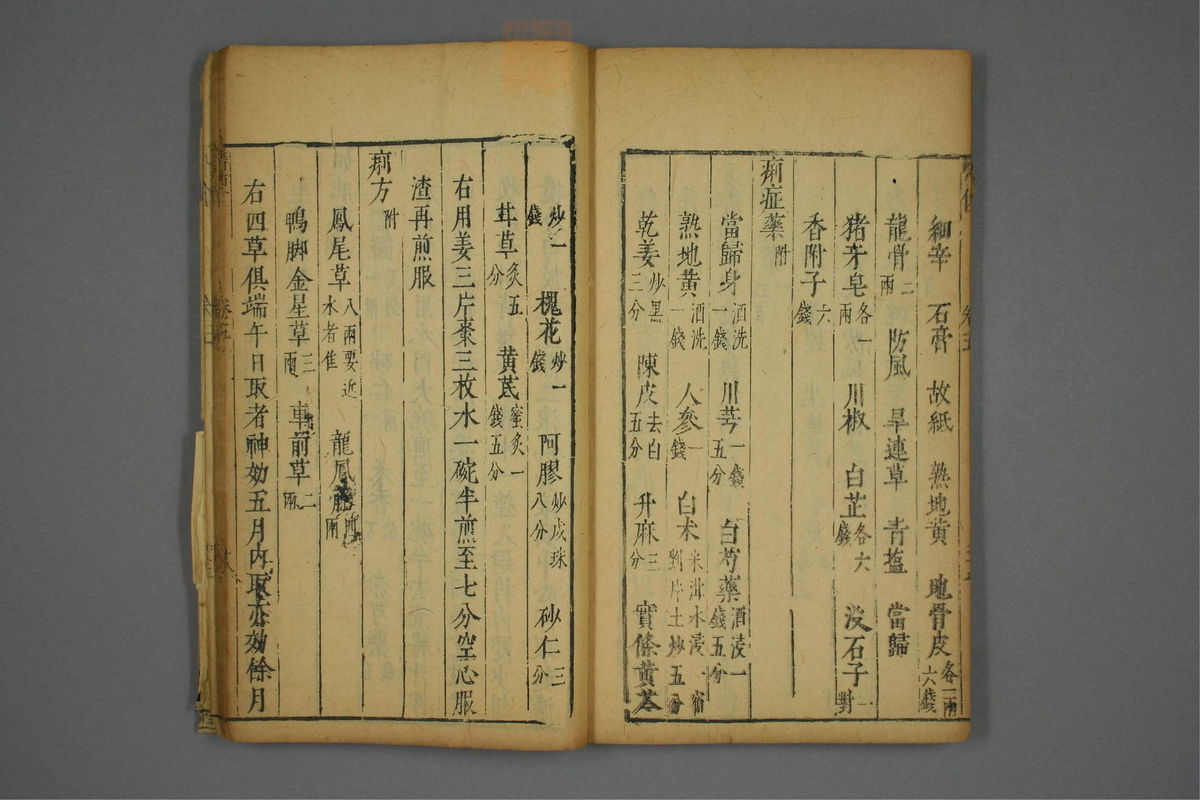 細辛 石膏 故紙 熟地黄 地骨皮各一兩六錢
龍骨二兩 防風 旱連草 青塩 當歸
猪牙皂各一兩 川椒 白芷各六錢 没石子一對
香附子六錢
痢症藥附
當歸身酒洗一錢 川芎一錢五分 白芍藥酒浸一錢五分
熟地黄酒洗一錢 人參一錢 白术米泔水浸一宿剉片土炒五分
乾姜炒黒三分 陳皮去白五分 升麻三分 實條黄芩
炒一錢 槐花炒一錢 阿膠炒成珠八分 砂仁三分
甘草炙五分 黄芪蜜炙一錢五分
右用姜三片棗三枚水一碗半煎至七分空心服
渣再煎服
痢方附
鳳尾草八兩要近水者隹 龍鳳兩
鴨脚金星草三兩 車前草二兩
右四草俱端午日取者神効五月内取亦効餘月